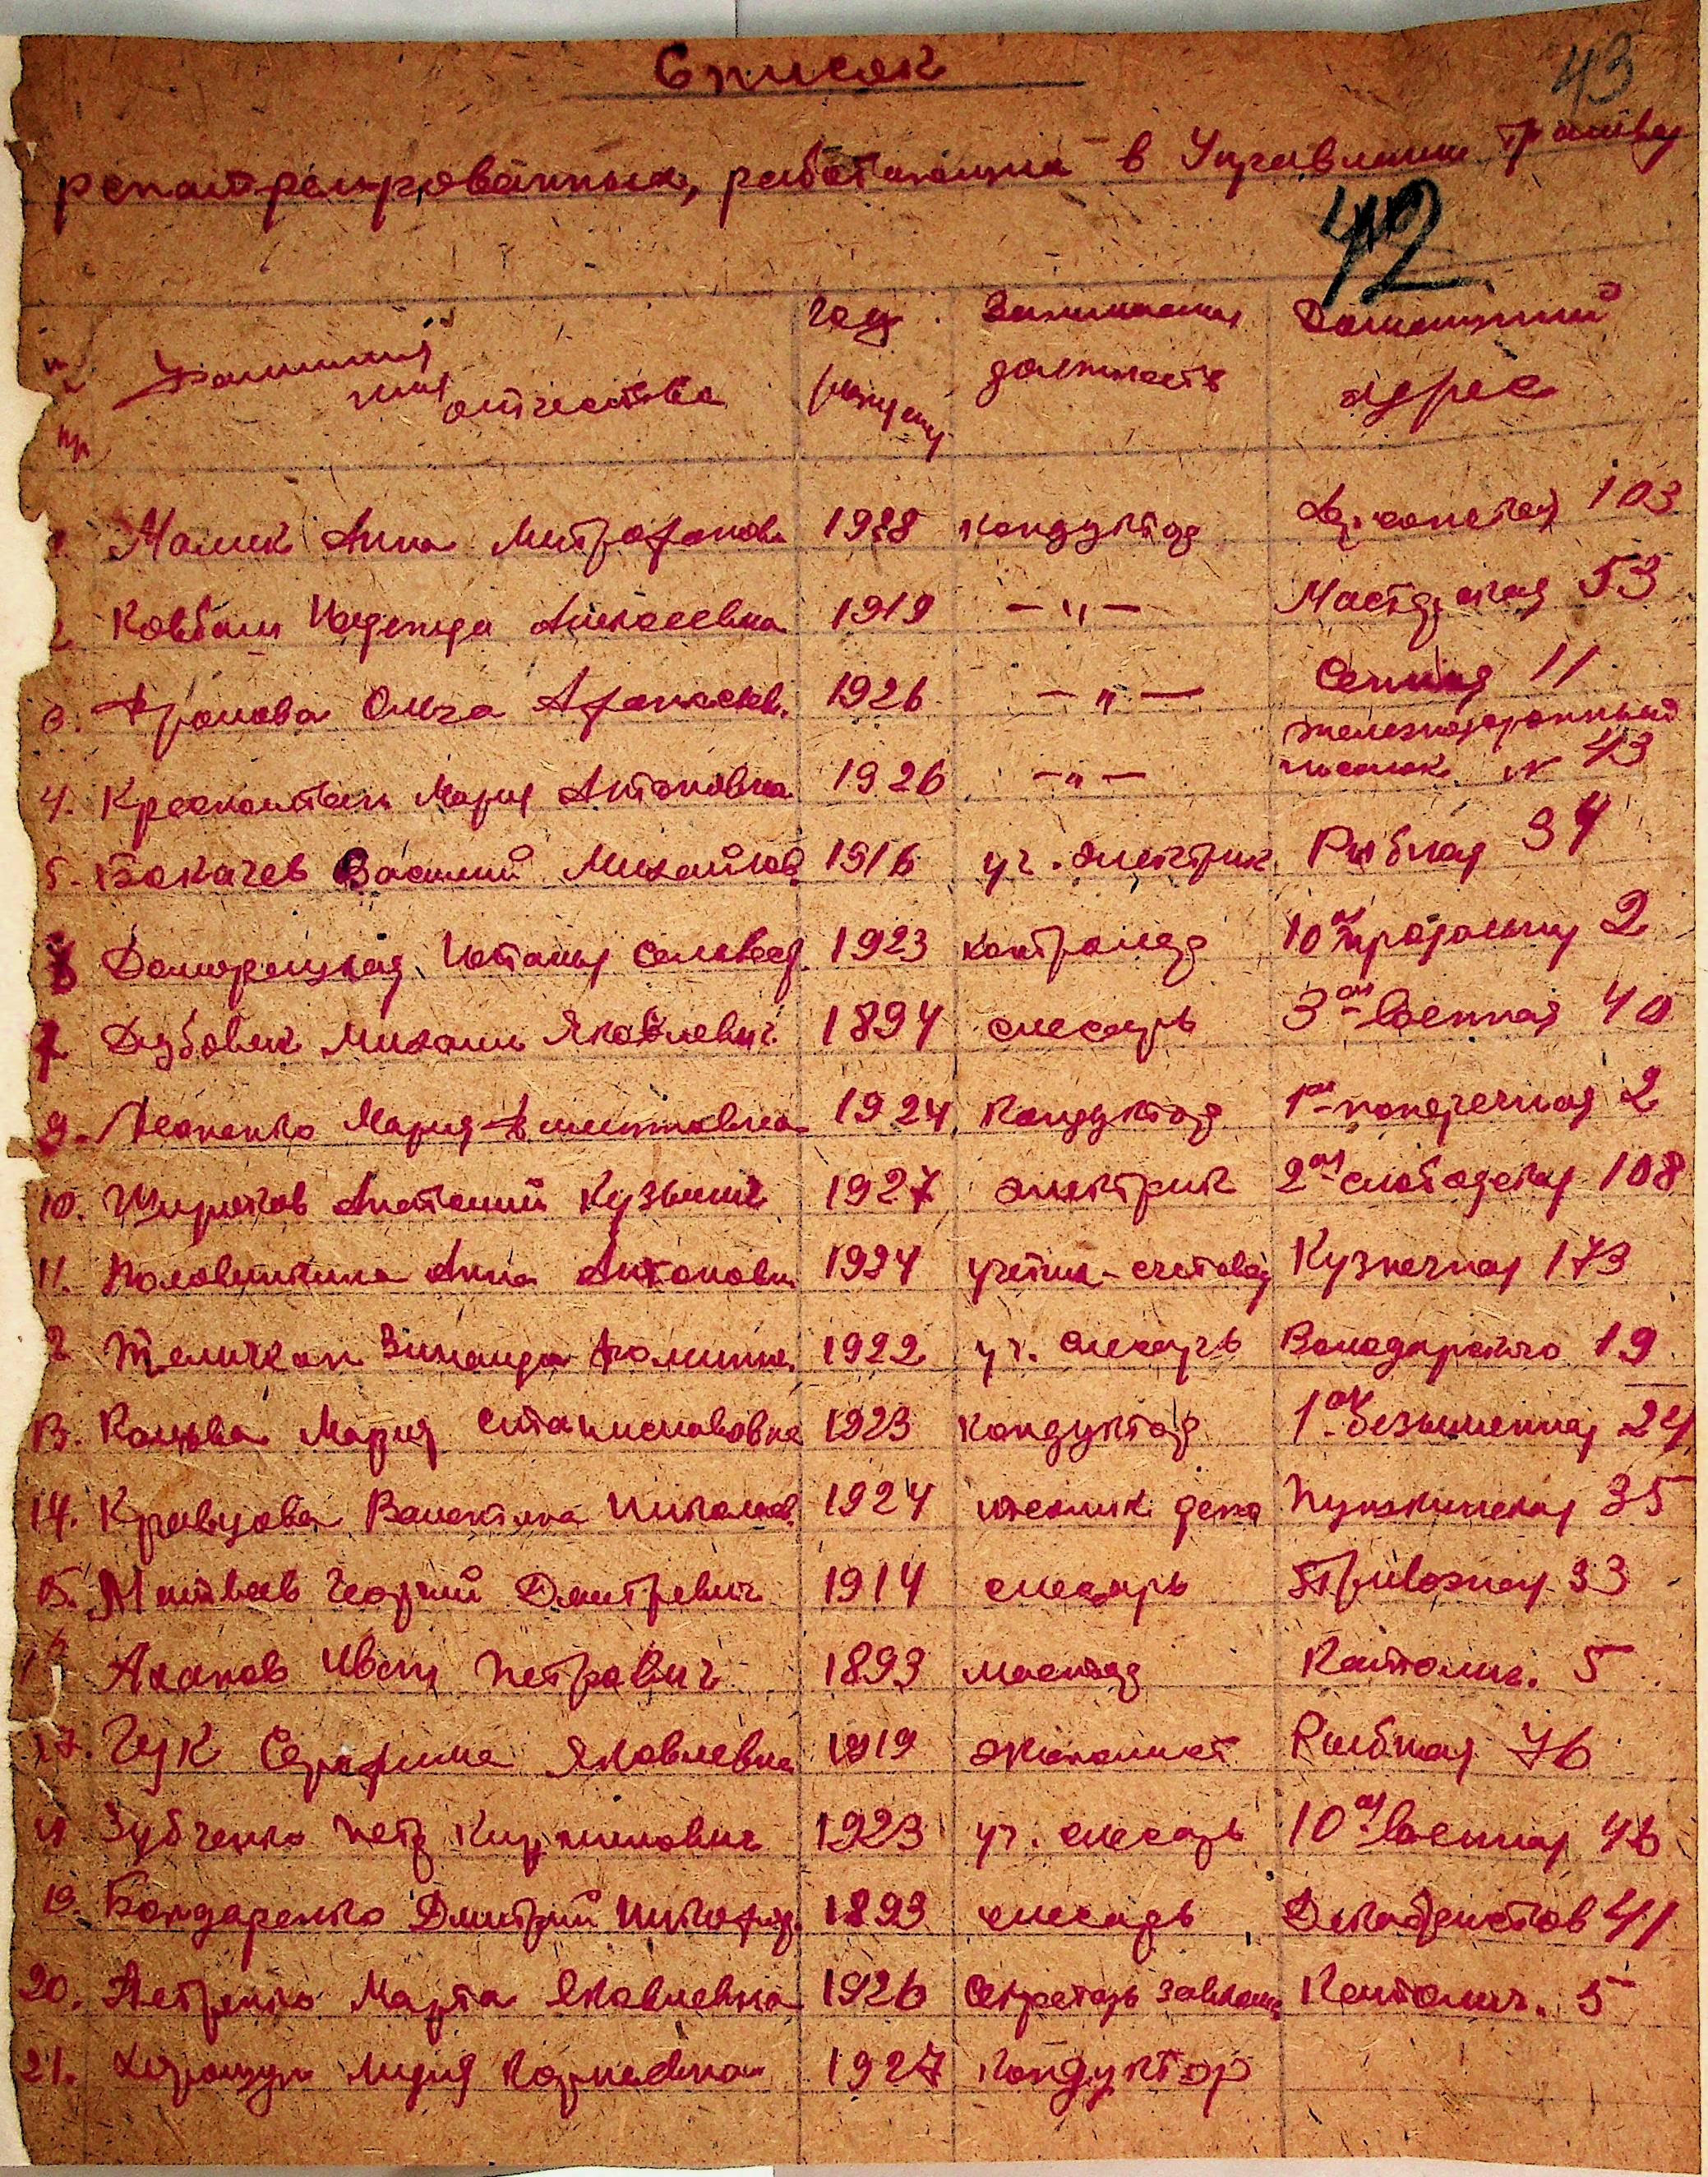 43
Список
репатреированных, работающих в Управлении трамвая
42
Фамилия имя отчество Год рожден. Занимаемая должность Домашний адрес
1. Малик Анна Митрофанов. 1928 кондуктор 103
2. Ковбаш Надежда Алексеевна 1919 —"— Мастерская 53
3. Фролова Ольга Афанасьев. 1926 —"— Сенная 11
4. Мария Антоновна 1926 —"— железнодорожный поселок № 43
5. Бокачев Василий Михайлов. 1916 уч. электрик Рыбная 34
Наталья 1923 контролер 10ая продольная 2
7. Дубовик Михаил Яковлевич 1894 слесарь 3ая военная 40
9. Леоненко Мария 1924 кондуктор 1ая поперечная 2
10. Анатолий Кузьмич 1927 электрик 2ая слободская 108
11. Половинкина Анна Антоновн. 1924 Кузнечная 173
2 Зинаида 1922 уч. слесарь Володарского 19
13. Мария Станиславовна 1923 кондуктор 1ая безыменная 24
14. Кравцова Валентина Николаев. 1924 депо Пушкинская 35
15. Матвеев Георгий Дмитревич 1914 слесарь 33
16 Аханов Иван Петрович 1893 мастер Католич. 5
17. Гук Серафима Яковлевна 1919 экономист Рыбная 76
Зубченко Петр Кириллович 1923 уч. слесарь 10ая военная 46
19. Бондаренко Дмитрий Никифор. 1893 слесарь Декабристов 41
20. Петренко Марта Яковлевна 1926 Секретарь Католич. 5
21. Лидия Корнеевна 1927 кондуктор